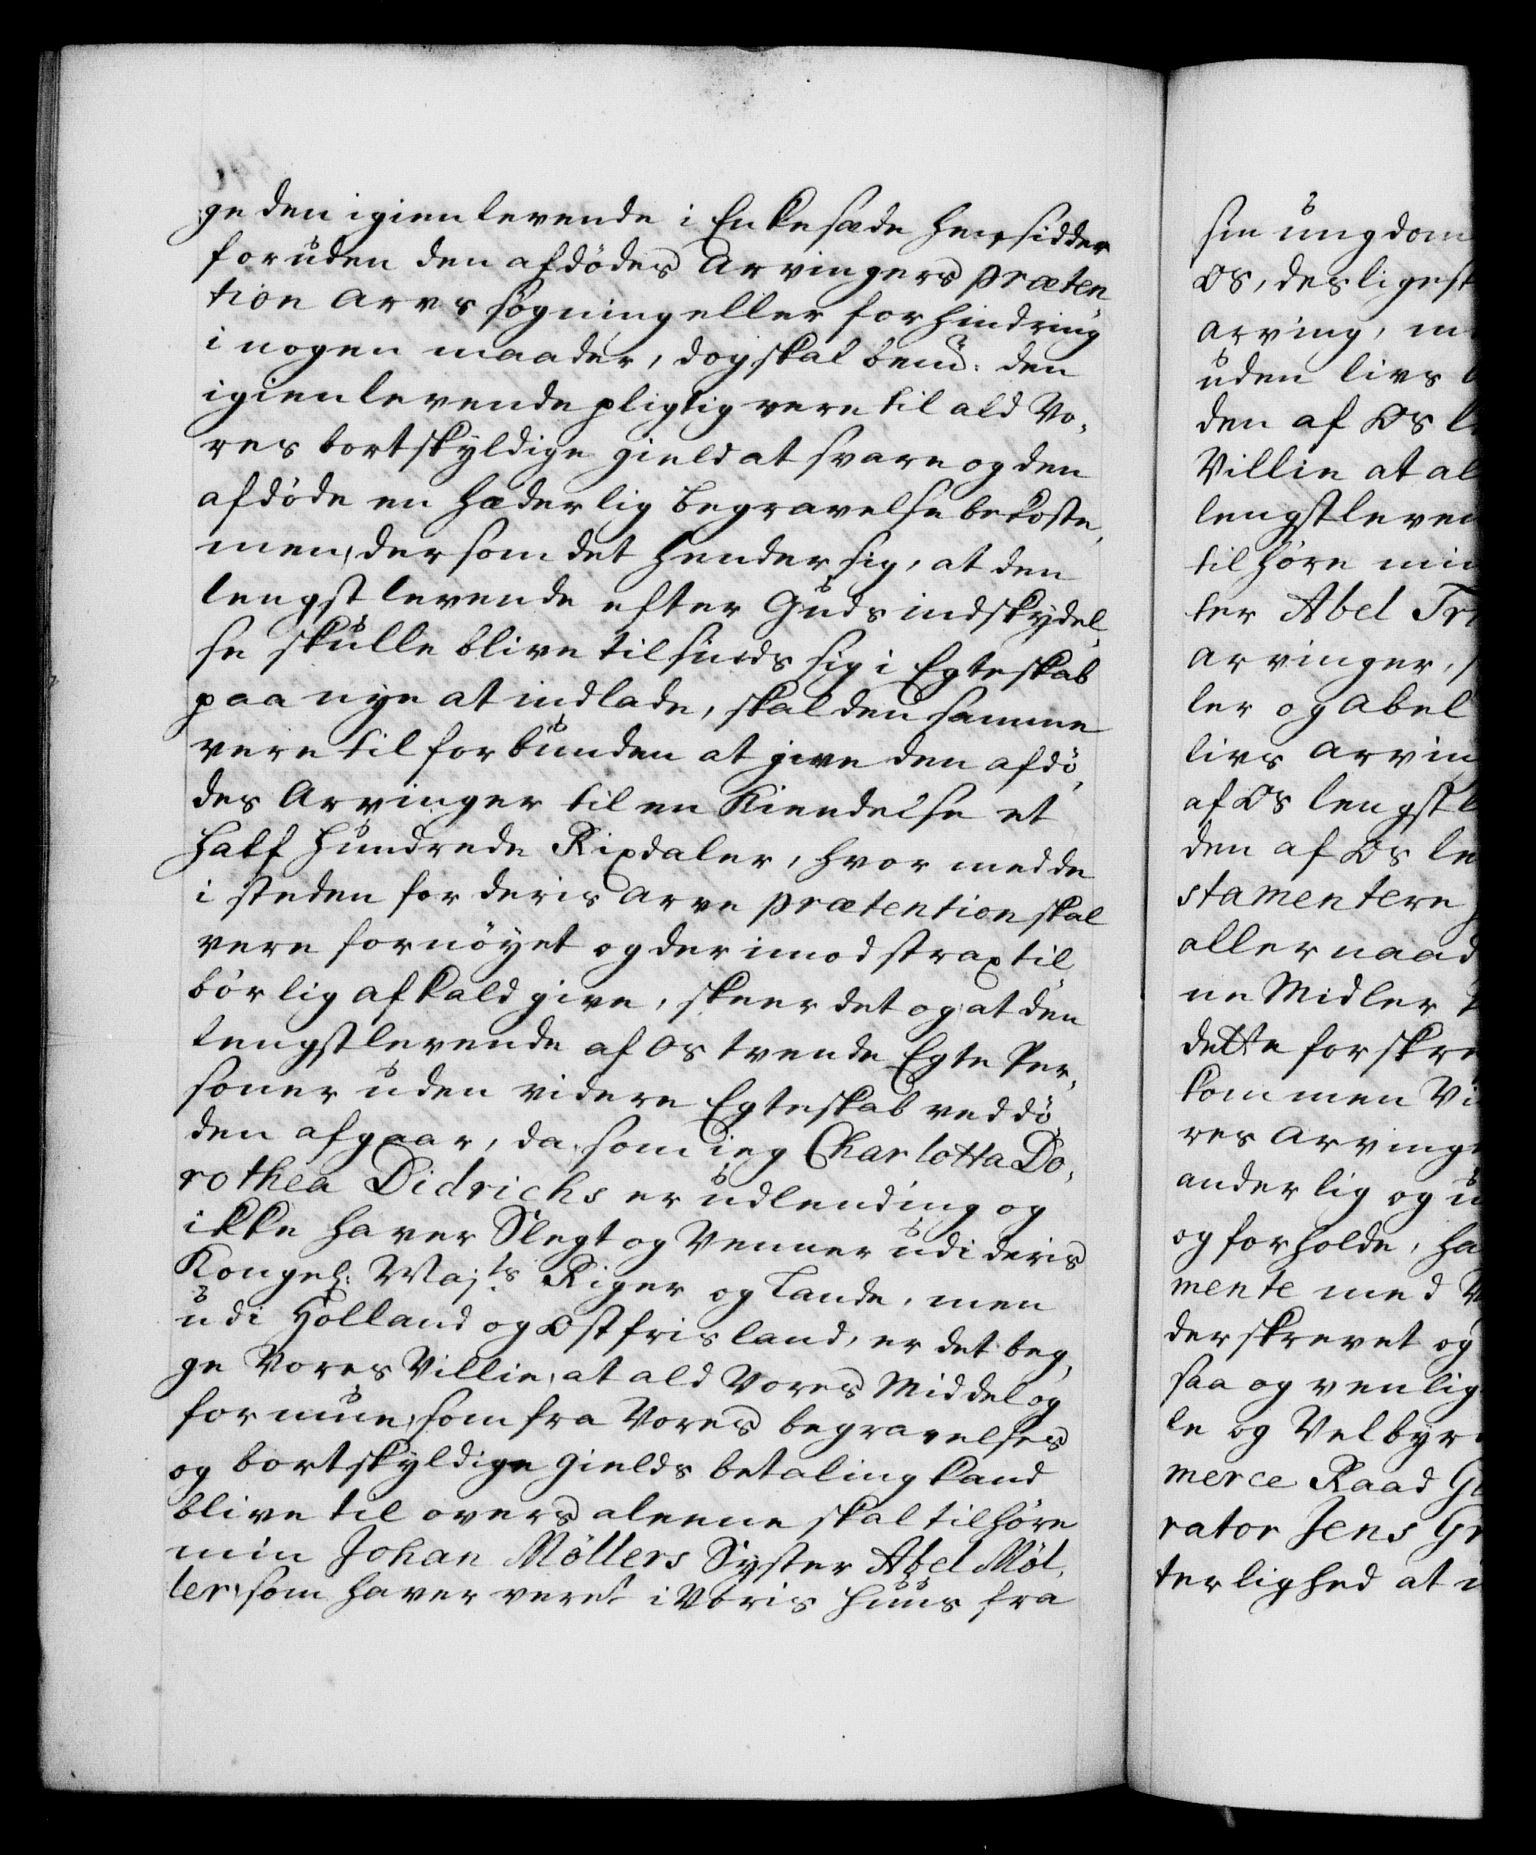 ge den igien levende i Enkesæde hensidder
foruden den afdödes Arvingers præten
tion arvs søgning eller forhindring
i nogen maader, dog skal bem: den
igienlevende pligtig være til ald Vo,
res bortskyldige gield at svare og den
afdöde en hæderlig begravelse bekoste,
men, dersom det hender sig, at den
lengst levende efter Guds indskydel,
se skulle blive tilsinds sig i Egteskab
paa nye at indlade, skal den samme
være til forbunden at give den afdö,
des Arvinger til en Kiendelse et
half hundrede Rixdaler, hvormed de
i steden for deris arve prætention skal
være fornöyet og derimod strax til
börlig afkald give, skeer det og at den
lengstlevende af os tvende Egte Per,
soner uden videre Egteskab ved dö,
den afgaar, da som ieg Charlotta Do,
rothea Didrichs er udlending og
ikke haver Slegt og Venner udi deris
Kongel: Maj:ts Riger og Lande, men
udi Holland og Ostfrisland, er det beg,
ge Vores Villie, at ald Vores Middel og
formue, som fra Vores begravelses
og bortskyldige gields betaling kand
blive til overs aleene skal tilhöre
min Johan Möllers Syster Abel Möl,
ler, som haver veret i Voris huus fra
sin ungdom
os, desligest
arving, m
uden livs
den af os l
Villie at al
lengstleven
tilhöre min
ter Abel Tr
arvinger,
ler og Abel
livs arvin
af os lengstl
den af os le
stamentere
allernaad
ne Midler
dette forskre
kommen Vi
res arving
anderlig og u
og forholde, ha
mente med V
derskrevet og
saa og venlig
le og Velbyr
merce Raad G
rator Jens Gr
terlighed at i